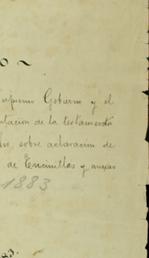 o ~
Supremo Gobierno y el
de la testamentª
sobre aclaración de
de Encinillas y anexas
1883